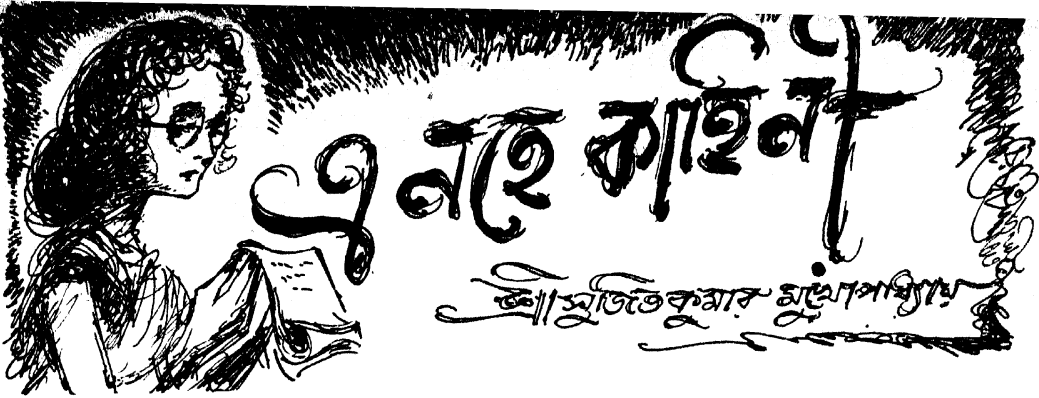 এ নহে কাহিনী
শ্রীসুজিতকুমার মুখোপাধ্যায়